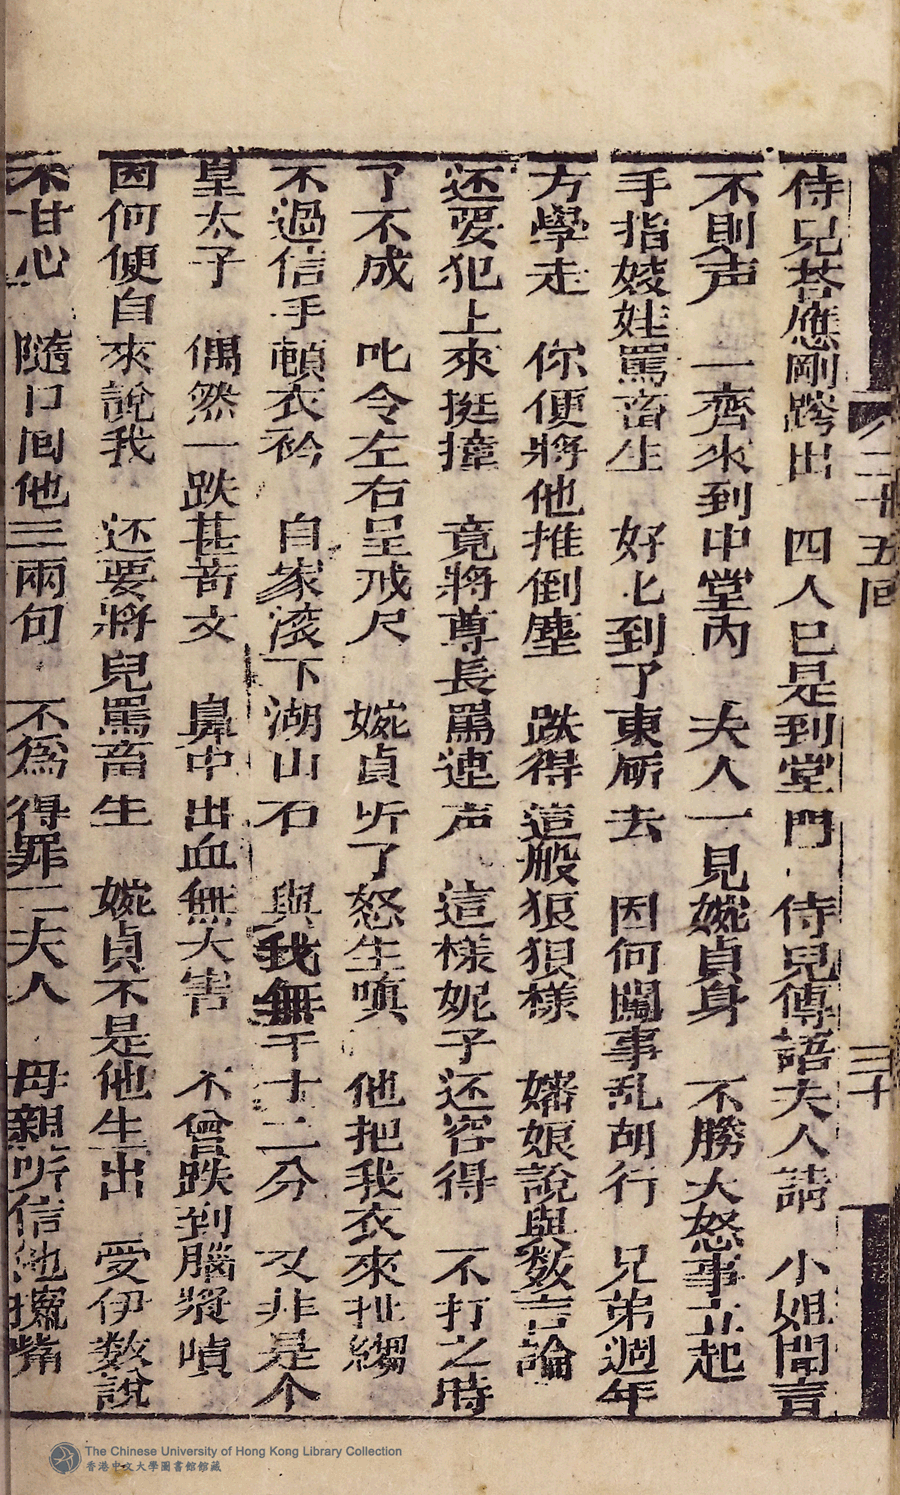 二十五囬
三十
侍兒荅應剛跨出 四人已是到堂門 侍兒傳語夫人請 小姐聞言
不則声 一齊來到中堂內 夫人一見婉貞身 不勝大怒事立起
手指妓娃罵畜生 好上到了東厛去 因何闖事乱胡行 兄弟週年
方學走 你便將他推倒塵 跌得這般狼狽樣 嬸娘說與数言論
还要犯上來挺撞 竟將尊長罵連声 這樣妮子还容得 不打之時
了不成 叱令左右呈戒尺 婉貞听了怒生嗔 他把我衣來扯縐
不過信手頓衣衿 自家滚下湖山石 與我無干十二分 又非是个
皇太子 偶然一跌甚竒文 鼻中出血無大害 不曾跌到腦漿噴
因何便自來說我 还要將兒罵畜生 婉貞不是他生出 受伊数說
不甘心 隨口囬他三兩句 不為得罪二夫人 母親听信他攛觜
The Chinese University of Hong Kong Library Collection
香港中文大學圖書館館藏